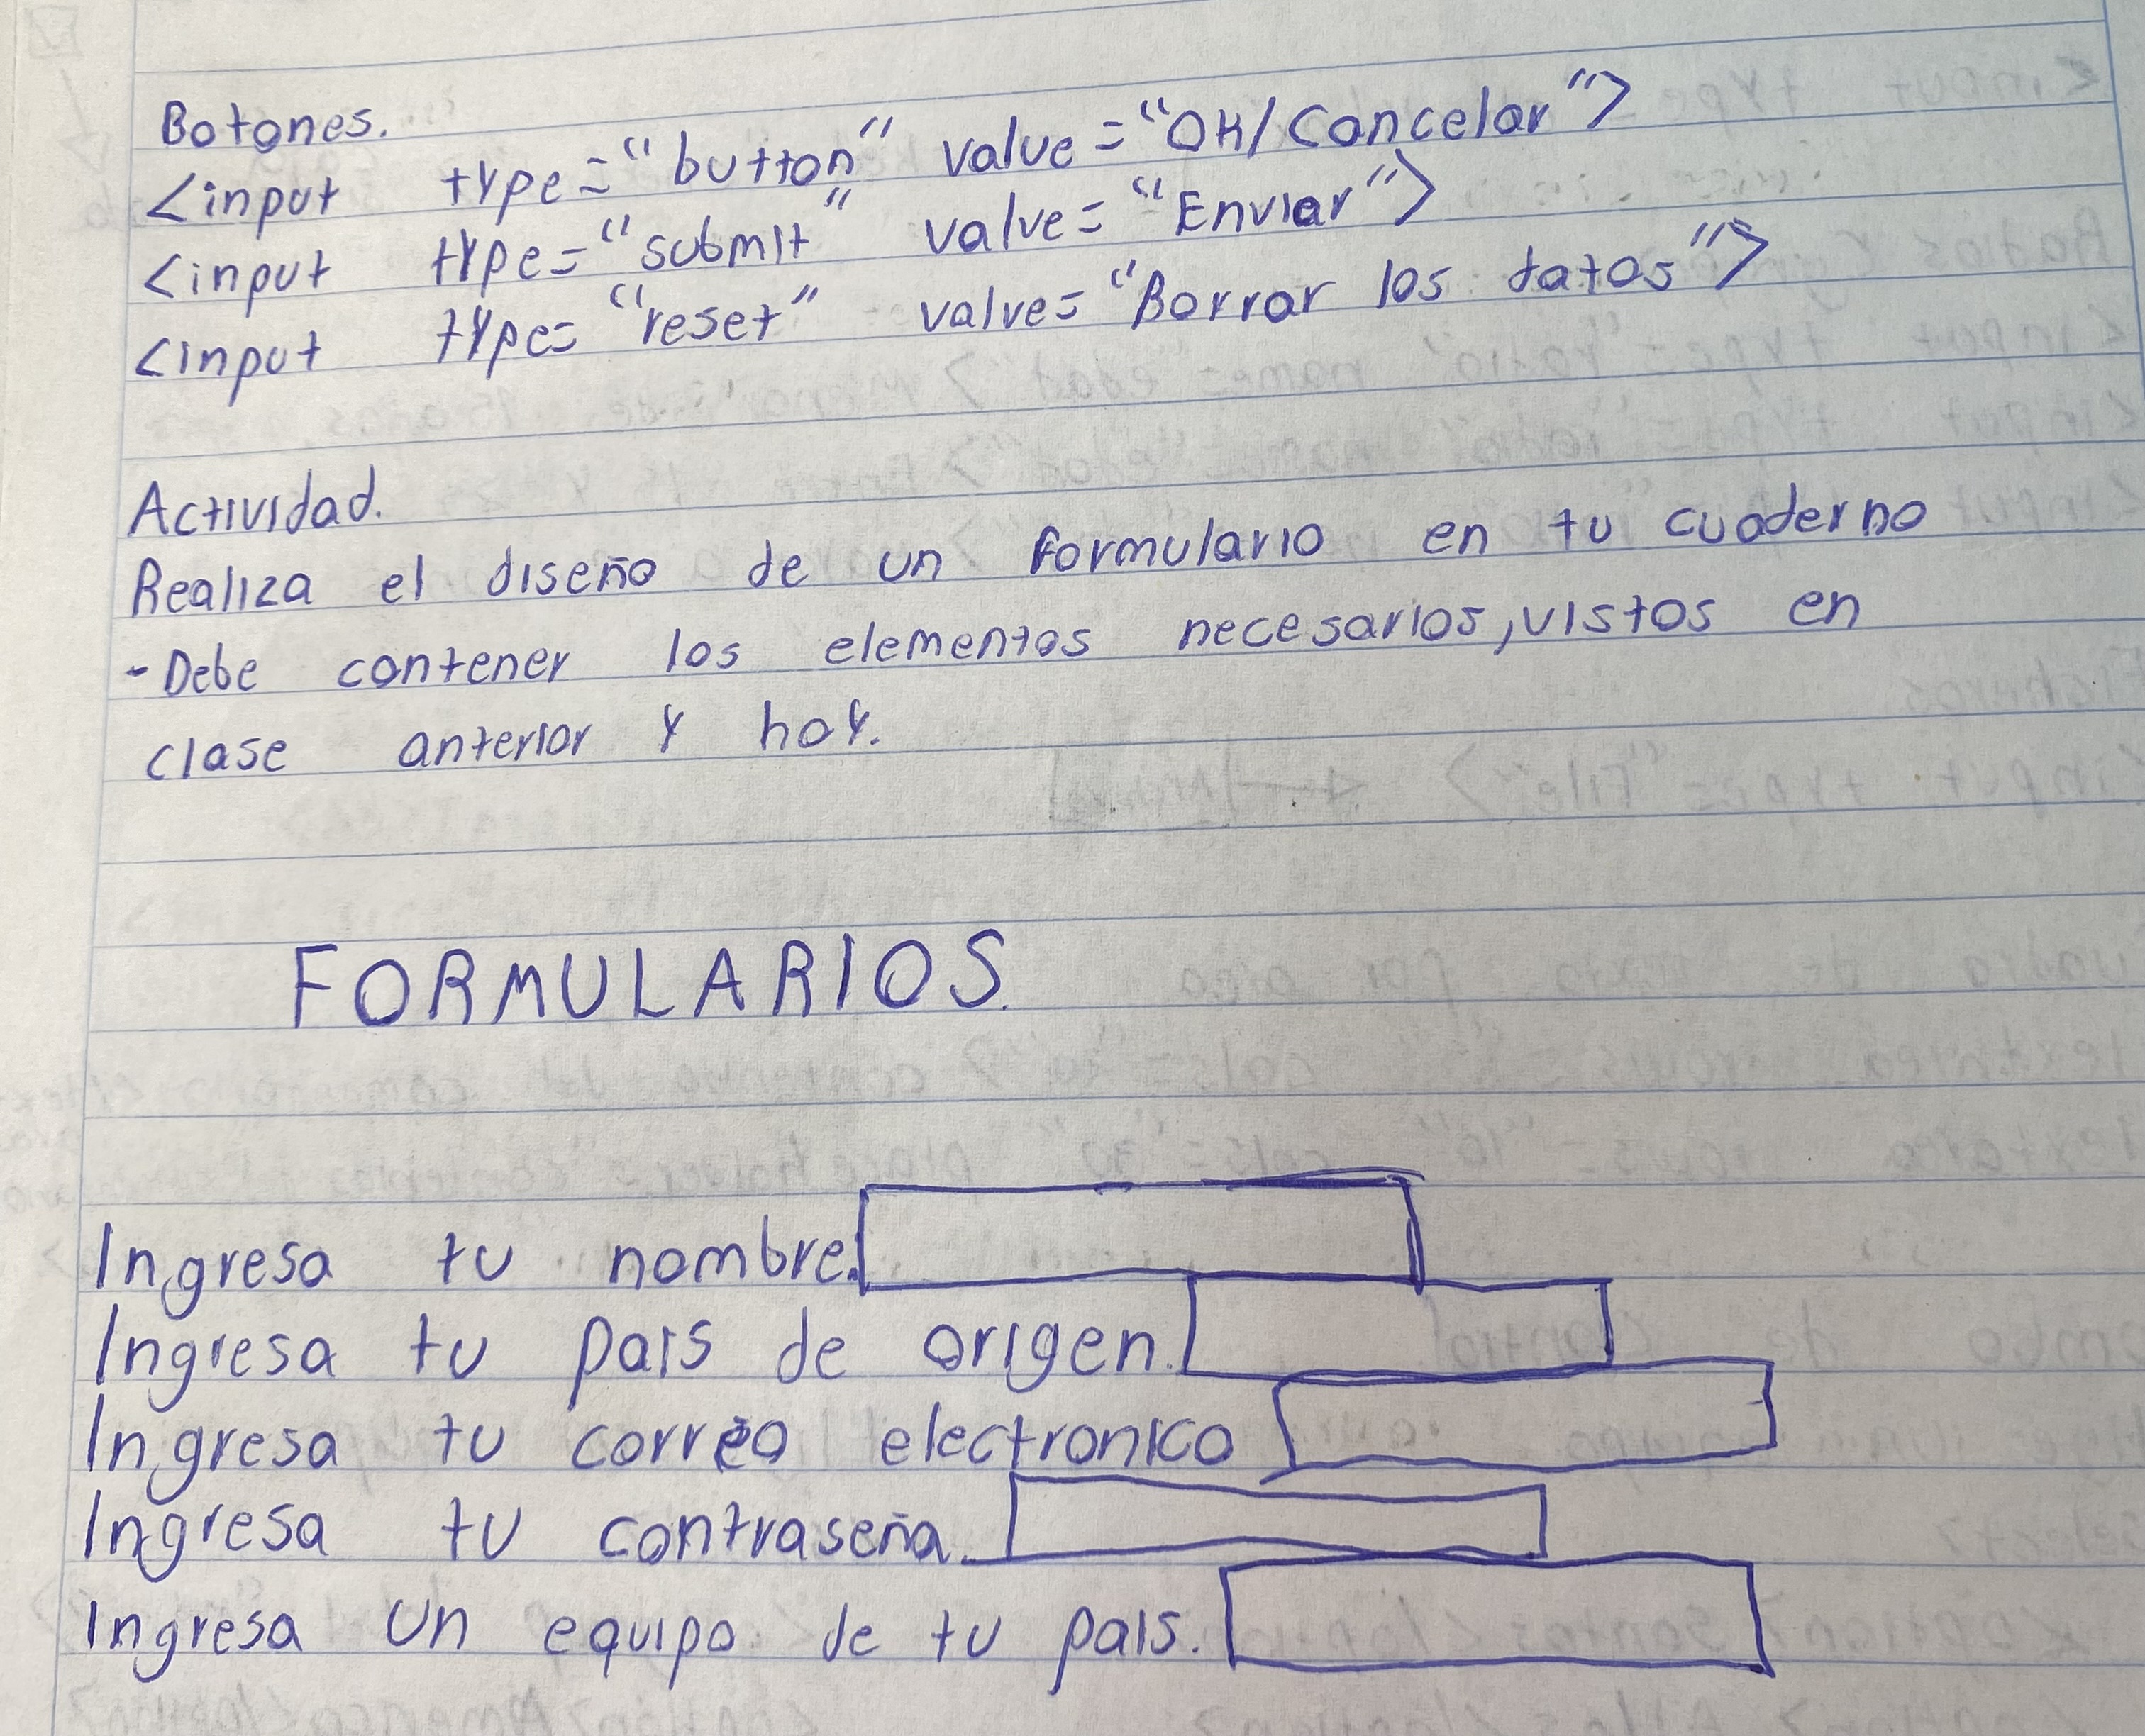 Botones.
<input type="button" value="OK/Cancelar">
<input type="submit" value="Enviar">
<input type="reset" value="Borrar los datos">
Actividad.
Realiza el diseño de un formulario en tu cuaderno
-Debe contener los elementos necesarios, vistos en
clase anterior y hoy.
FORMULARIOS.
Ingresa tu nombre.
Ingresa tu pais de origen.
Ingresa tu correo electronico
Ingresa tu contraseña.
Ingresa un equipo de tu pais.